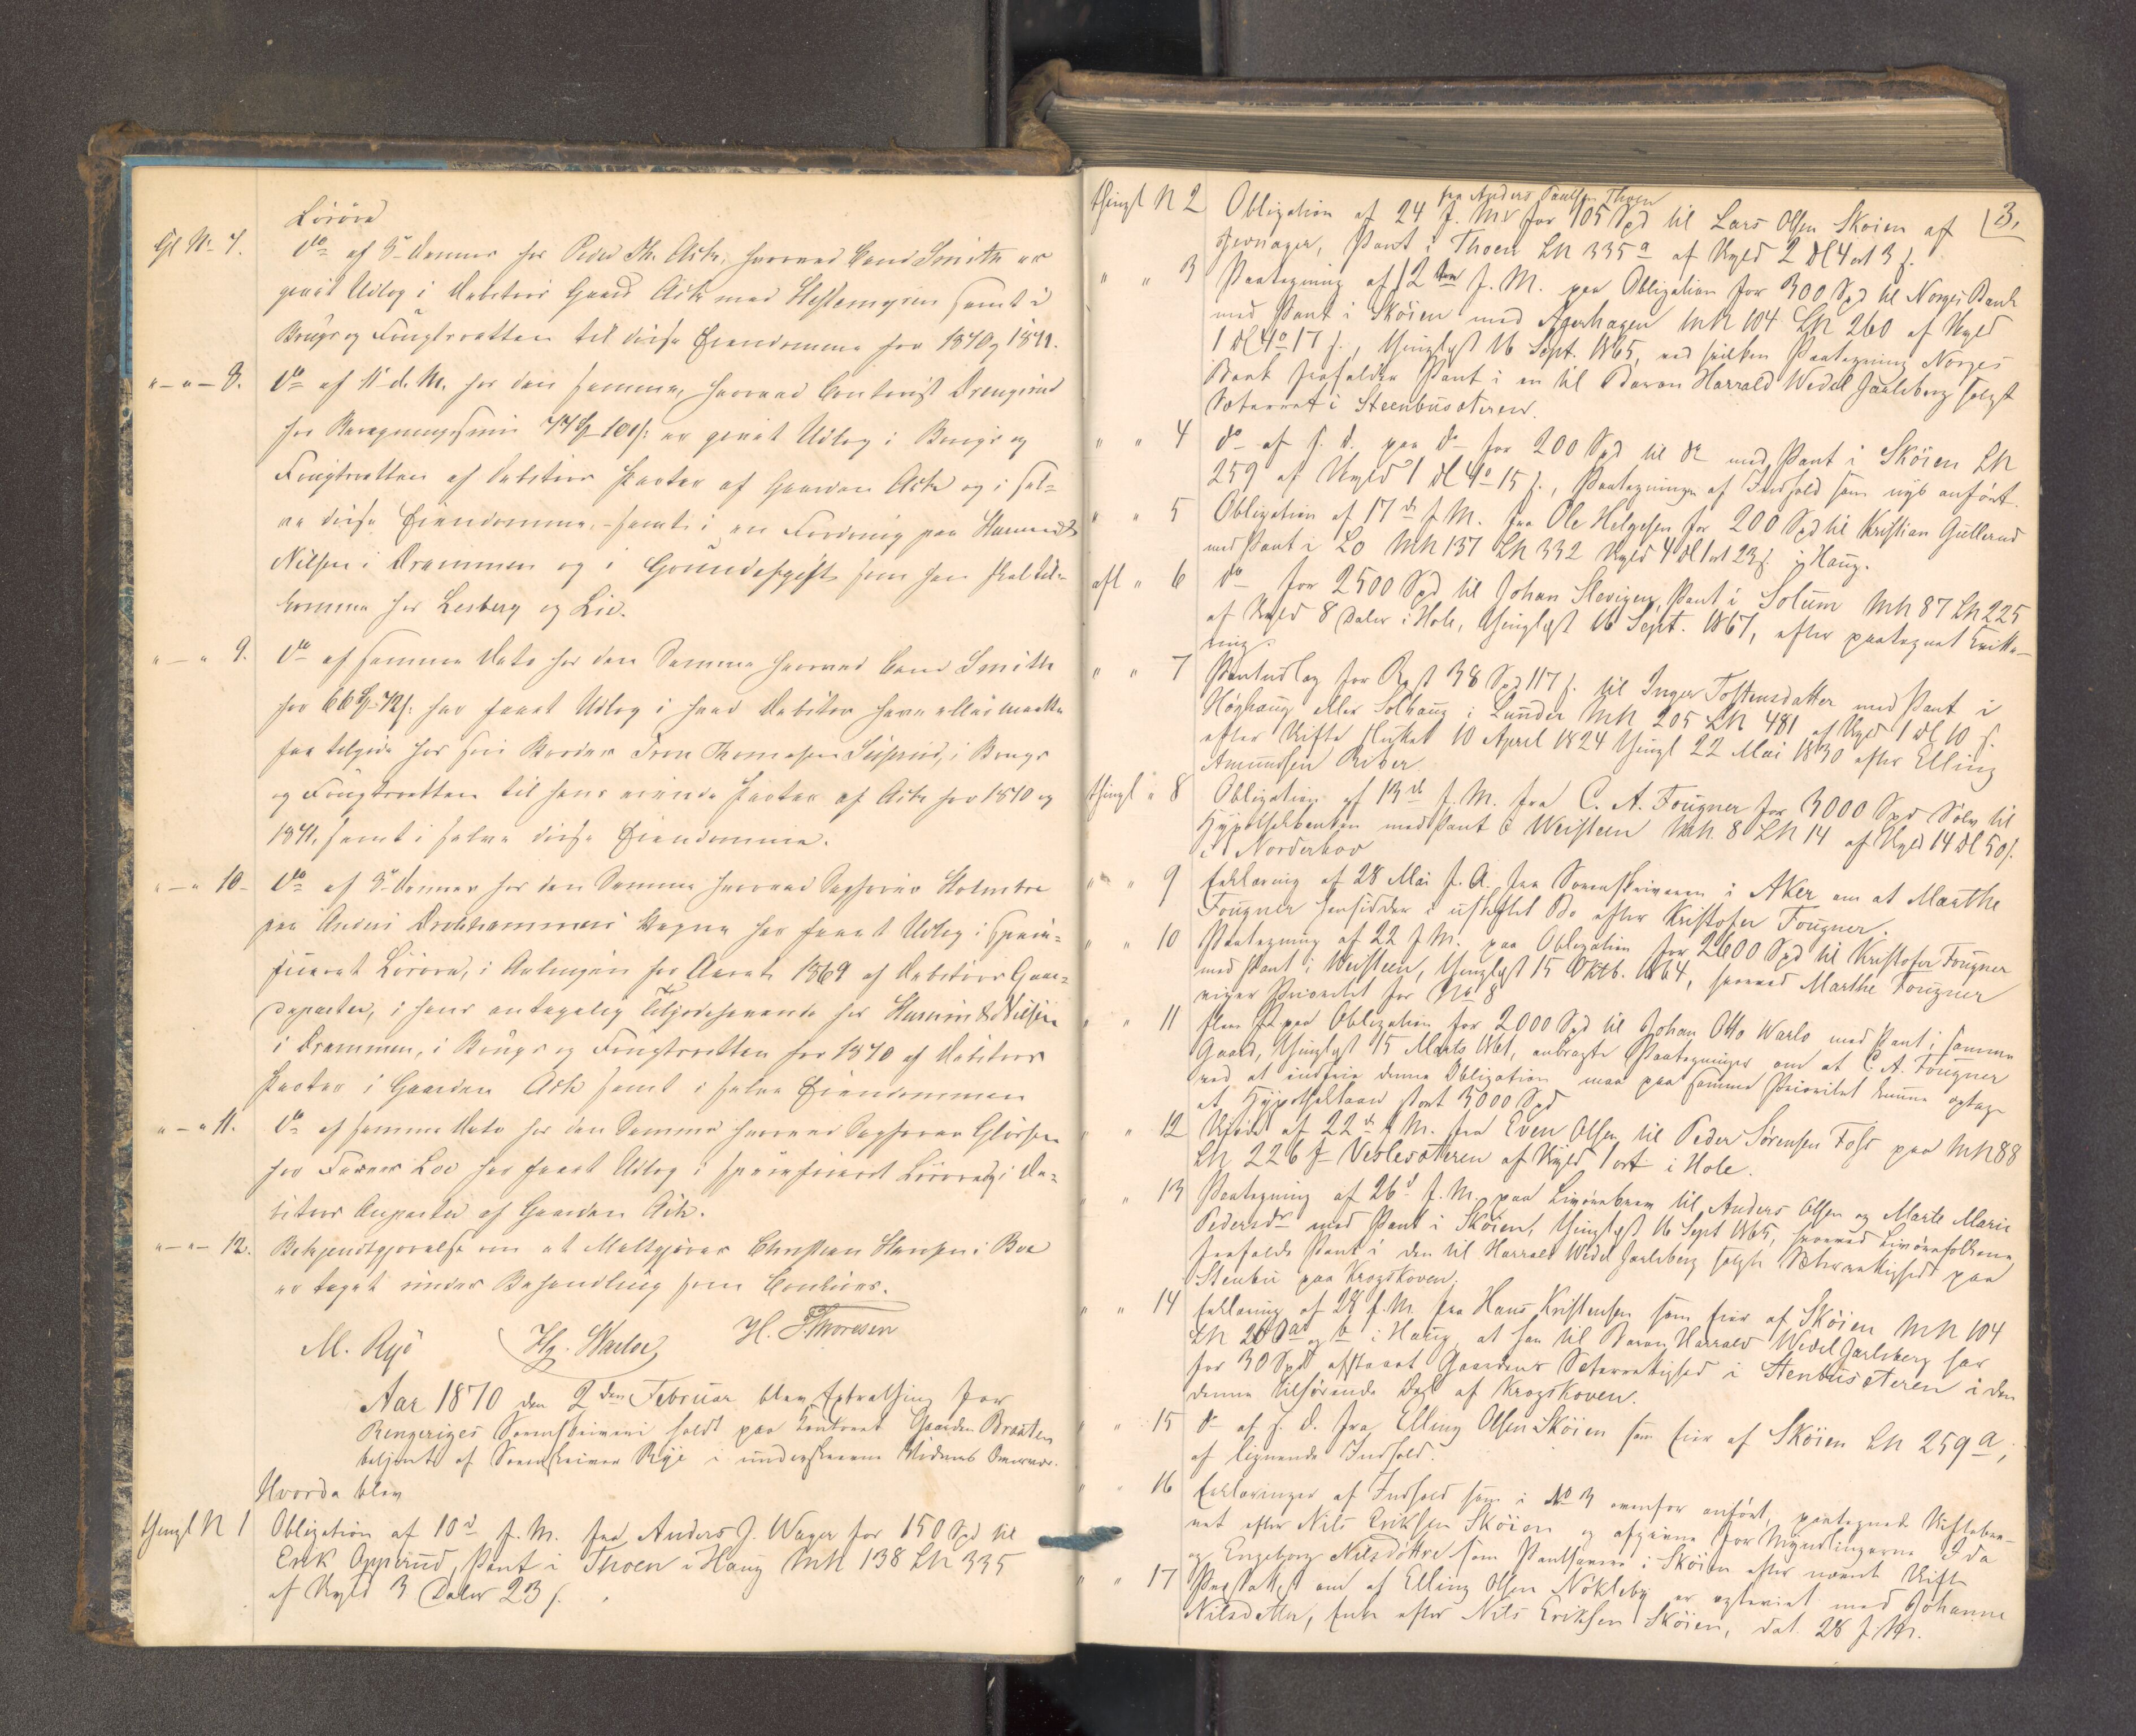 Lösöre
Tgl N 7. do af 3 denner for Peder Th. Ask, hvorved Cand Smith er
givet Udlæg i Debitors Gaard Ask med Hesteengen samt i
Brugs og Frugtsretten til disse Eiendomme for 1870 og 1871.
" — " — 8. do af 11 d. M. for den samme, hvorved Contorist Drengsrud
for Regningssum 74 10 s: er givet Udlæg i Brugs og
Frugtsretten af Debitors Parter af Gaarden Ask og i sel-
ve disse Eiendomme, - samt i en Fordring paa
Nilsen i Drammen og i Grundafgift som han skal til-
komme for Lesberg og Lie.
" — " 9. do af samme Dato for den Samme hvorved Cand Smith
for 66 72 s: har faaet Udlæg i hvad Debitor have eller maatte
faa tilgode hos sin Broder Iver Thomasen, i Brugs
og Frugtsretten til hans eiende Parter af Ask for 1870 og
1871, samt i selve disse Eiendomme.
" — " 10 — do af 3 denner for den Samme hvorved Sagfører Holmboe
paa Anders Drolshammers Vegne har faaet Udlæg i speci-
ficeret Lösöre, i Avlingen for Aaret 1869 af Debitors Gaar-
departer, i hans antagelig Tilgodehavende hos Nilsen
i Drammen, i Brugs og Frugtsretten for 1870 af Debitors
Parter i Gaarden Ask samt i selve Eiendommen
" — " 11. do af samme Dato for den Samme hvorved Sagfører
for Farver Loe har faaet Udlæg i specificeret Lösöre og i De-
bitors Anparter af Gaarden Ask.
" — " — 12. Bekjendtgjørelse om at Maltgjører Christian Hansen i Boe
er taget under Behandling som Contuors.
M. Rye Hg. Warloe H. Thoresen
Aar 1870 den 2den Februar blev Extrathing for
Ringeriges Sorenskriveri holdt paa Contoret Gaarden Braaten
betjent af Sorenskriver Rye i underskrevne Vidners Overvær.
Hvorda blev
thingl N 1 Obligation af 10d f. M. fra Anders J. Wager for 150 Spd til
Erik Opperud, Pant i Thoen i Haug Mn 138 Ln 335
af Skyld 3 Daler 23 s.
3,
fra Anders Paulsen Thoen
thingl N 2 Obligation af 24 f. Ms for 105 Spd til Lars Olsen Skøien af
Jevnager, Pant i Thoen Ln 335a af Skyld 2 dl 4 ort 3 s.
" " 3 Paategning af 12 f. M. paa Obligation for 300 Spd til Norges Bank
med Pant i Skøien med Agerhagen Mn 104 Ln 260 af Skyld
1 dl 4o 17 s., thinglyst 16 Sept. 1865, ved hvilken Paategning Norges
Bank frafalder Pant i en til Baron Harrald Wedel Jarlsberg solgt
Sæterret i Steenbusæteren.
" " 4 do af s. d. paa do for 200 Spd til do med Pant i Skøien Ln
259 af Skyld 1 dl 4o 15 s., Paategningen af Indhold som nys anført
" " 5 Obligation af 17 d f. M. fra Ole Helgesen for 200 Spd til Kristian Gullerud
med Pant i Lo Mn 137 Ln 332 Skyld 4 dl 1 ort 23 s i Haug.
afl " 6 do for 2500 Spd til Johan Slevigen, Pant i Solum Mn 87 Ln 225
af Skyld 8 Daler i Hole, thinglyst 16 Sept. 1867, efter paategnet Kvitte-
ring.
" " 7 Pantudlæg for Rest 38 Spd 117 s. til Inger Tostensdatter med Pant i
Høghaug eller Solhaug i Lunder Mn 205 Ln 481 af Skyld 1 dl 10 s.
efter Skifte sluttet 10 April 1824 thingl 22 Mai 1830 efter Elling
Amundsen Riber
thingl " 8 Obligation af 13d f. M. fra C. A. Fougner for 3000 Spd Sølv til
Hypothekbanken med Pant i Weisteen Mn. 8 Ln 14 af Skyld 14 dl 50 s.
i Norderhov
" " 9 Erklæring af 28 Mai f. A. fra Sorenskriveren i Aker om at Marthe
Fougner hensidder i uskiftet Bo efter Kristofer Fougner.
" " 10 Paategning af 22 f. M. paa Obligation for 2600 Spd til Kristofer Fougner
med Pant i Weisteen, thinglyst 15 Oktb. 1864, hvorved Marthe Fougner
viger Prioritet for No 8
" " 11 paa Obligation for 2000 Spd til Johan Otto Warlo med Pant i samme
Gaard, thinglyst 15 Marts 1861, anbragte Paategninger om at C. A. Fougner
ved at indfrie denne Obligation maa paa samme Prioritet kunne optage
et Hypotheklaan stort 3000 Spd
" " 12 Skjøde af 22d f. M. fra Even Olsen til Peder Sørensen Foss paa Mn 88
Ln 226 f Veslesæteren af Skyld 1 ort i Hole.
" " 13 Paategning af 26d f. M. paa Livørebrev til Anders Olsen og Marte Marie
Pedersdr med Pant i Skøien, thinglyst 16 Sept 1865, hvorved Livørefolkene
frafalde Pant i den til Harrald Wedel Jarlsberg solgte Sæterrettighed paa
Stenbu paa Krogskoven.
" " 14 Erklæring af 28 f. M. fra Hans Kristensen som Eier af Skøien Mn 104
Ln 260 a og b i Haug, at han til Baron Harrald Wedel Jarlsberg har
for 30 Spd afstaaet Gaardens Sæterrettighed i Stenbusæteren i den
denne tilhørende Del af Krogskoven.
" " 15 do af s. d. fra Elling Olsen Skøien som Eier af Skøien Ln 259 a,
af lignende Indhold.
" " 16 Erklæringer af Indhold som i No 3 ovenfor anført, paategnede Skiftebre-
vet efter Nils Eriksen Skøien og afgivne for Myndlingerne Ida
og Engeborg Nilsdøttre som Panthavere i Skøien efter nævnte Skifte
" " 17 Præsteattest om at Elling Olsen Nokleby er egteviet med Johanne
Nilsdatter, Enke efter Nils Eriksen Skøien, dat. 28 f. M.